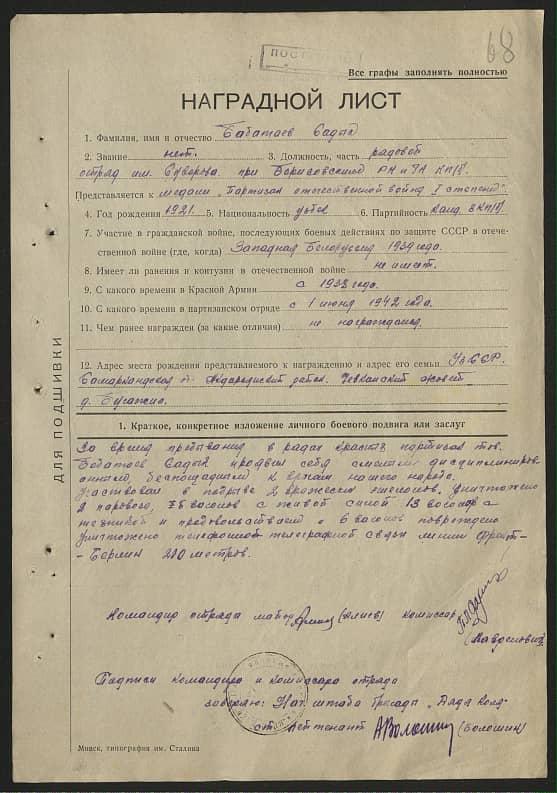 68
Все графы заполнять полностью
НАГРАДНОЙ ЛИСТ
1. Фамилия, имя и отчество Бабатаев Садых
2. Звание нет. 3. Должность, часть рядовой
отряд им. Суворова при Борисовском РК и ГК КП/б/
Представляется к медали "Партизан отечественной войны I степени".
4. Год рождения 1921. 5. Национальность узбек 6. Партийность канд. ВКП/б/
7. Участие в гражданской войне, последующих боевых действиях по защите СССР в отече-
ственной войне (где, когда) Западная Белоруссия 1939 года.
8. Имеет ли ранения и контузии в отечественной войне не имеет.
9. С какого времени в Красной Армии с 1938 года.
10. С какого времени в партизанском отряде с 1 июня 1942 года.
11. Чем ранее награжден (за какие отличия) не награждался.
12. Адрес места рождения представляемого к награждению и адрес его семьи УзССР.
Самаркандская район
1. Краткое, конкретное изложение личного боевого подвига или заслуг
За время пребывания в рядах красных партизан тов.
Бабатаев Садых проявил себя смелым дисциплиниров-
анным, беспощадным к врагам нашего народа.
Участвовал в подрыве 2 вражеских эшелонов. Уничтожено
2 паровоза, 75 вагонов с живой силой 13 вагонов с
техникой и продовольствием и 6 вагонов повреждено
Уничтожено телефонной телеграфной связи линии фронт-
- Берлин 200 метров.
Командир отряда майор (Алиев) комиссар
Подписи командира и комиссара отряда
заверяю: Нач. штаба бригады "Дяда Коля"
ст. лейтенант АВолошин (Волошин)
Минск, типография им. Сталина
ДЛЯ ПОДШИВКИ